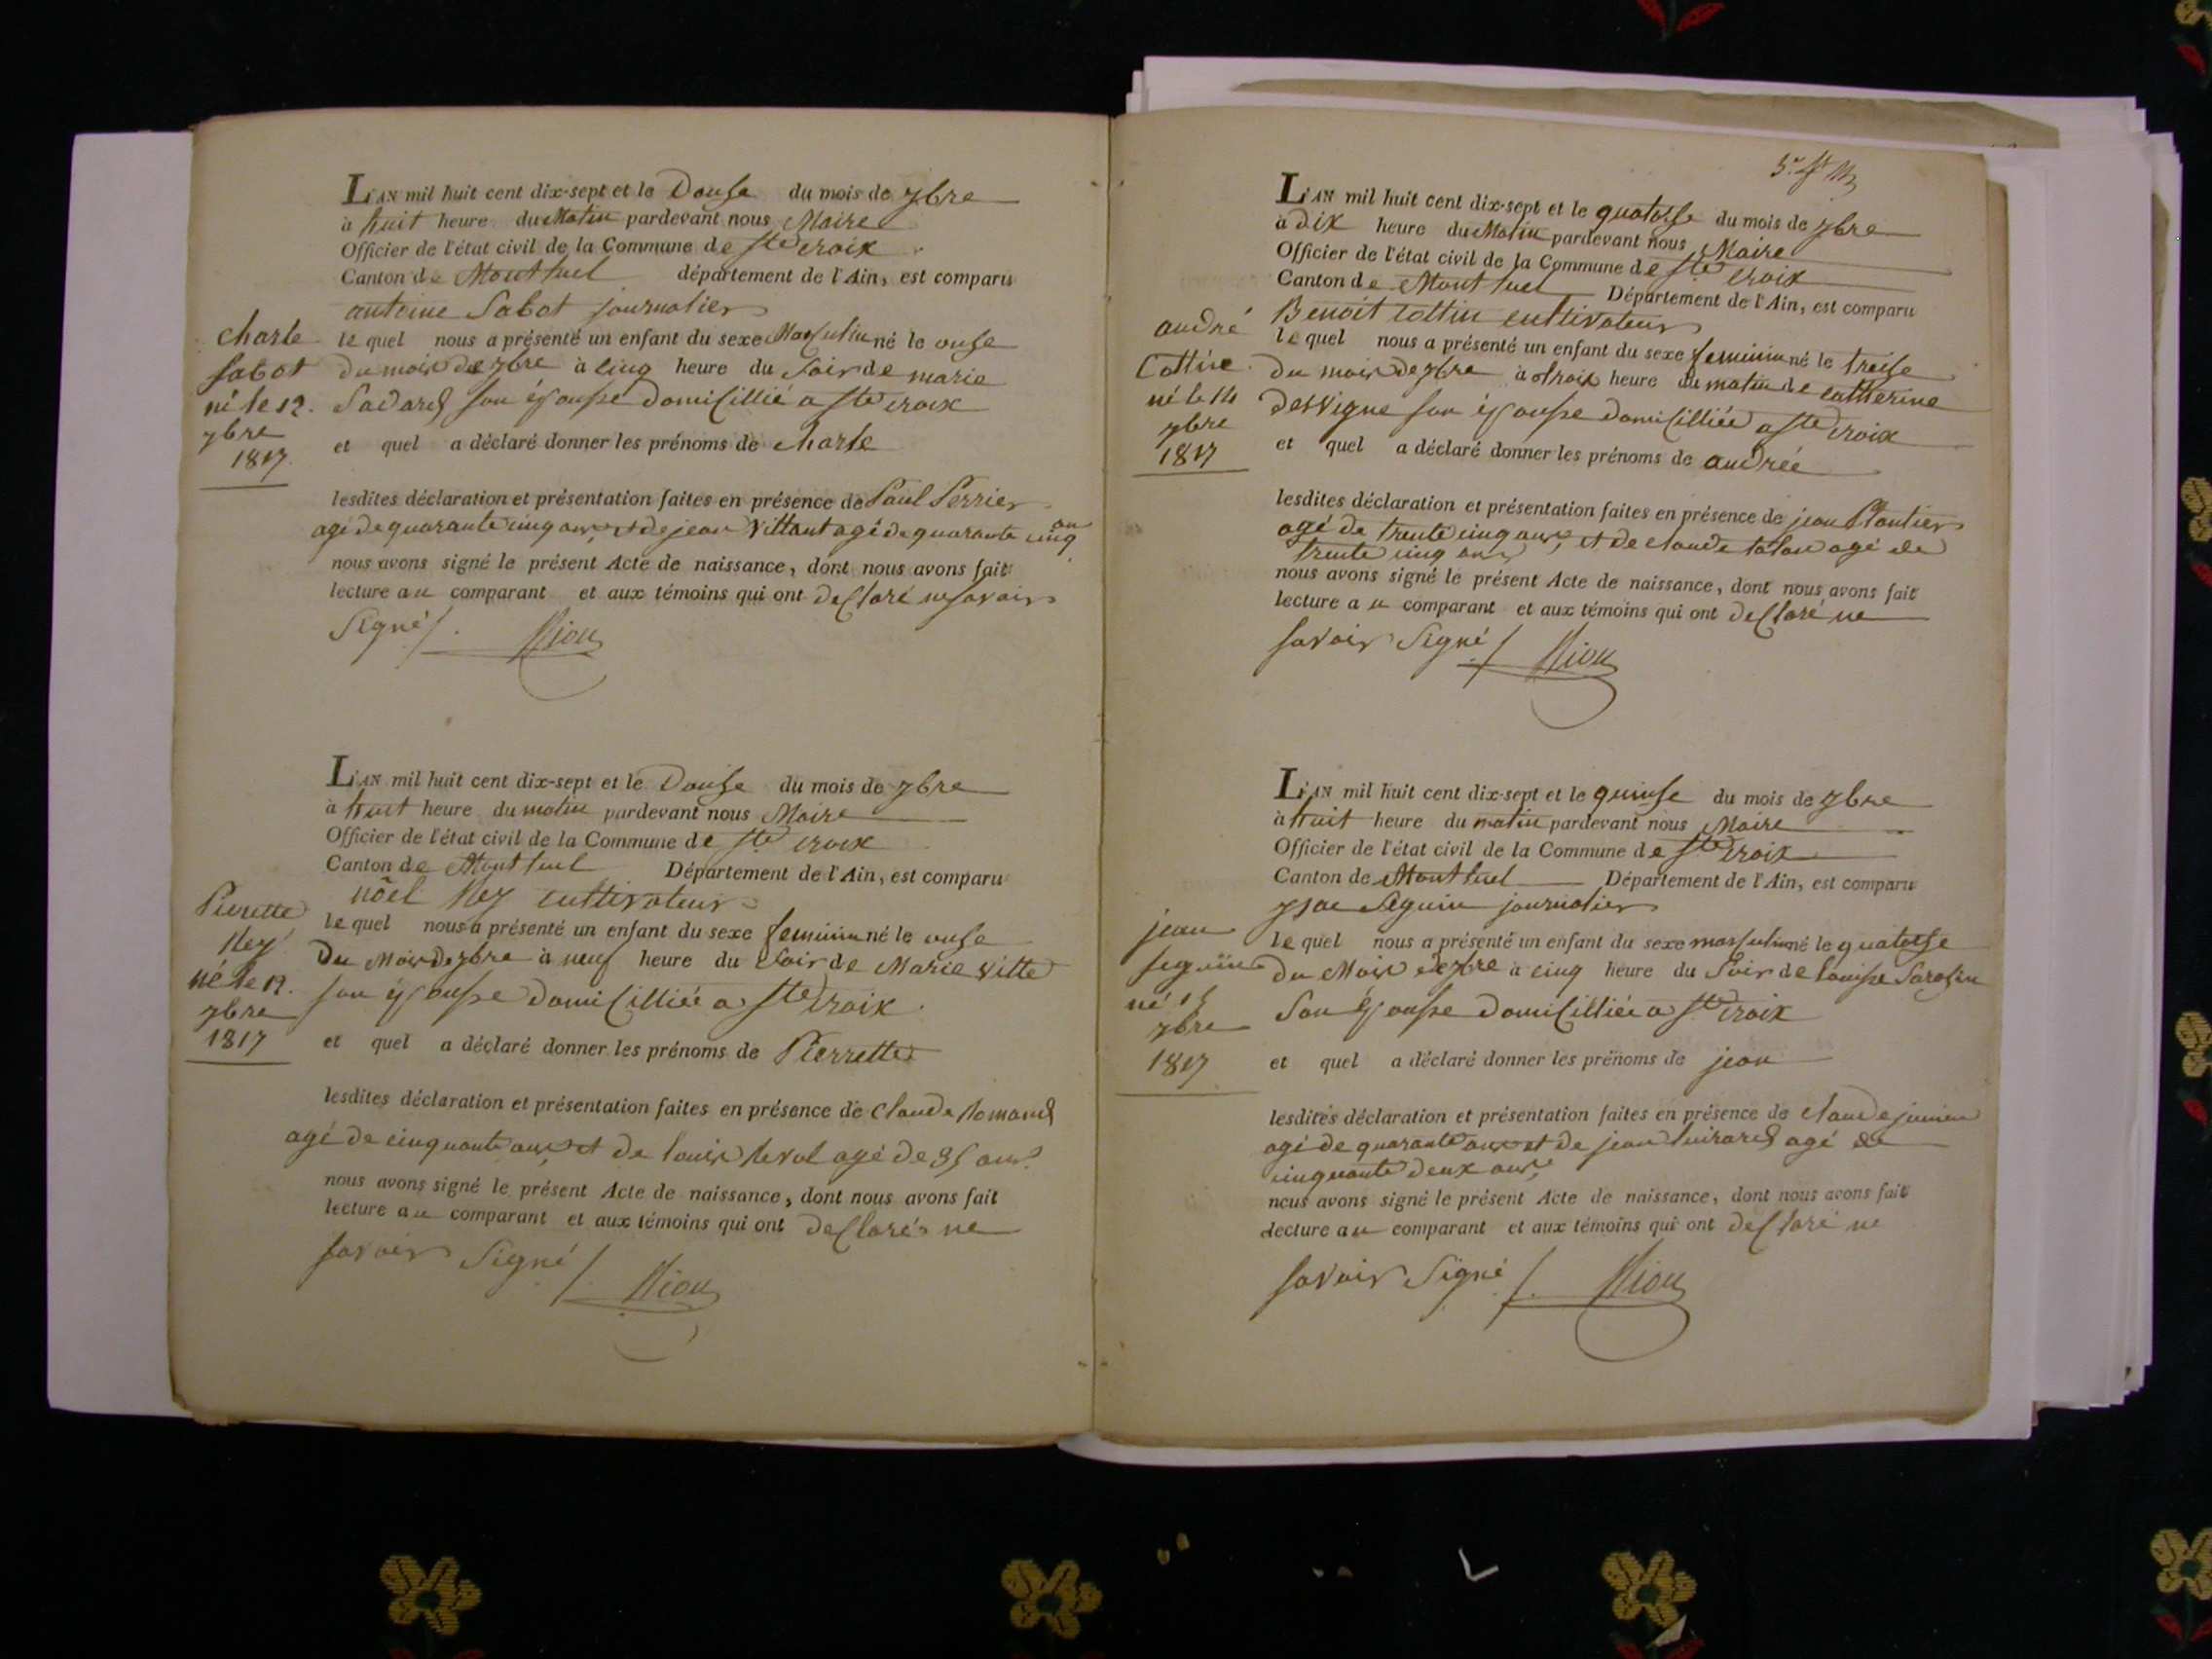 L'AN mil huit cent dix-sept et le Douse du mois de 7bre
à huit heure du Matin pardevant nous Maire
Officier de l'état civil de la Commune de Ste Croix
Canton de Montluel département de l'Ain, est comparu
antoine Sabot journalier
le quel nous a présenté un enfant du sexe Masculin né le onse
du mois de 7bre à cinq heure du Soir de marie
Savard son épouse domicillié a Ste croix
et quel a déclaré donner les prénoms de Charle
lesdites déclaration et présentation faites en présence de Paul Perrier
agé de quarante cinq ans, et de jean Vittant agé de quarante cinq an
nous avons signé le présent Acte de naissance, dont nous avons fait
lecture au comparant et aux témoins qui ont declaré ne savoir
Signé
Charle
Sabot
né le 12.
7bre
1817
L'AN mil huit cent dix-sept et le Douse du mois de 7bre
à huit heure du matin pardevant nous Maire
Officier de l'état civil de la Commune de Ste croix
Canton de Montluel Département de l'Ain, est comparu
nöel Rey cultivateur
le quel nous a présenté un enfant du sexe feminin né le onse
Du Mois de 7bre à neuf heure du Soir de Marie Vitte
son épouse domicilliée a Ste Croix
et quel a déclaré donner les prénoms de Pierrette
lesdites déclaration et présentation faites en présence de Claude Romand
agé de cinquante ans et de louis Revol agé de 35 ans
nous avons signé le présent Acte de naissance, dont nous avons fait
lecture au comparant et aux témoins qui ont declarés ne
savoir Signé
Pierrette
Rey
né le 12.
7bre
1817
L'AN mil huit cent dix-sept et le quatorse du mois de 7bre
à dix heure du Matin pardevant nous Maire
Officier de l'état civil de la Commune de Ste Croix
Canton de Montluel Département de l'Ain, est comparu
Benoit Cottin cultivateur
le quel nous a présenté un enfant du sexe feminin né le treise
du mois de 7bre à trois heure du matin de catherine
desvigne son épouse domicilliée a Ste croix
et quel a déclaré donner les prénoms de andrée
lesdites déclaration et présentation faites en présence de jean Plantier
agé de trente cinq ans, et de claude talon agé de
trente cinq ans
nous avons signé le présent Acte de naissance, dont nous avons fait
lecture au comparant et aux témoins qui ont declaré ne
savoir Signé
andré
Cottine
né le 14
7bre
1817
L'AN mil huit cent dix-sept et le quinse du mois de 7bre
à huit heure du matin pardevant nous Maire
Officier de l'état civil de la Commune de Ste Croix
Canton de Montluel Département de l'Ain, est comparu
ysac Seguin journalier
le quel nous a présenté un enfant du sexe masculin né le quatorse
du Mois de 7bre à cinq heure du Soir de louise
Son épouse domicilliée a Ste croix
et quel a déclaré donner les prénoms de jean
lesdites déclaration et présentation faites en présence de claude
agé de quarante ans et de jean agé de
cinquante deux ans,
nous avons signé le présent Acte de naissance, dont nous avons fait
lecture au comparant et aux témoins qui ont declaré ne
savoir Signé
jean
seguin
né 15
7bre
1817